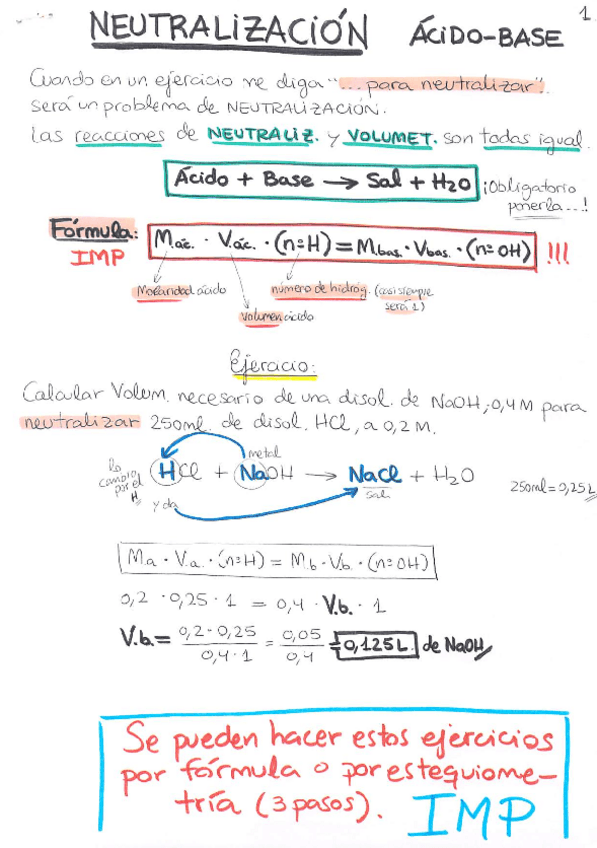 1
NEUTRALIZACIÓN ÁCIDO-BASE
Cuando en un ejercicio me diga "... para neutralizar".
será un problema de NEUTRALIZACIÓN.
Las reacciones de NEUTRALIZ. y VOLUMET. son todas igual.
Ácido + Base → Sal + H2O ¡Obligatorio
ponerla...!
Fórmula: Mác. · Vác. · (nºH) = Mbas. · Vbas. · (nºOH) !!!
IMP
Molaridad ácido
número de hidróg. (casi siempre
será 1)
volumen ácido
Ejercicio:
Calcular Volum. necesario de una disol. de NaOH, 0,4 M para
neutralizar 250ml. de disol. HCl, a 0,2 M.
metal
lo
cambio
por el
H
HCl + NaOH → NaCl + H2O
sal
y da
250ml = 0,25 L
Ma · Va. · (nºH) = Mb · Vb. · (nºOH)
0,2 · 0,25 · 1 = 0,4 · Vb. · 1
V.b. = 0,2 · 0,25 / 0,4 · 1 = 0,05 / 0,4 = 0,125 L. de NaOH
Se pueden hacer estos ejercicios
por fórmula o por estequiome-
tría (3 pasos). IMP